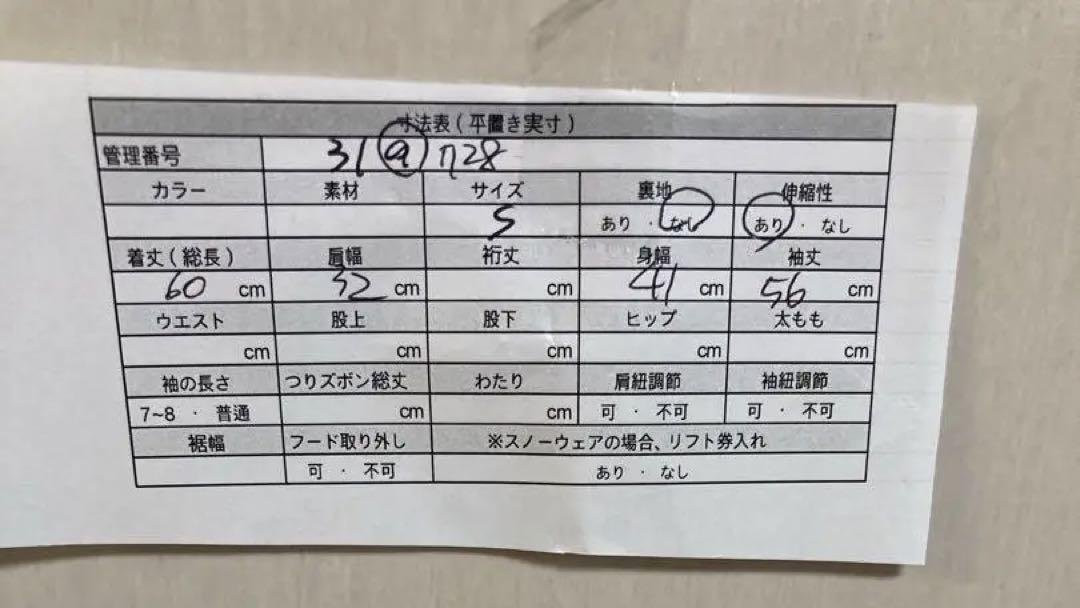 寸法表(平置き実寸)
管理番号 31 a 728
カラー 素材 サイズ 裏地 伸縮性
S あり ・ なし あり ・ なし
着丈(総長) 肩幅 裄丈 身幅 袖丈
60 cm 32 cm cm 41 cm 56 cm
ウエスト 股上 股下 ヒップ 太もも
cm cm cm cm cm
袖の長さ つりズボン総丈 わたり 肩紐調節 袖紐調節
7~8 ・ 普通 cm cm 可 ・ 不可 可 ・ 不可
裾幅 フード取り外し ※スノーウェアの場合、リフト券入れ
可 ・ 不可 あり ・ なし